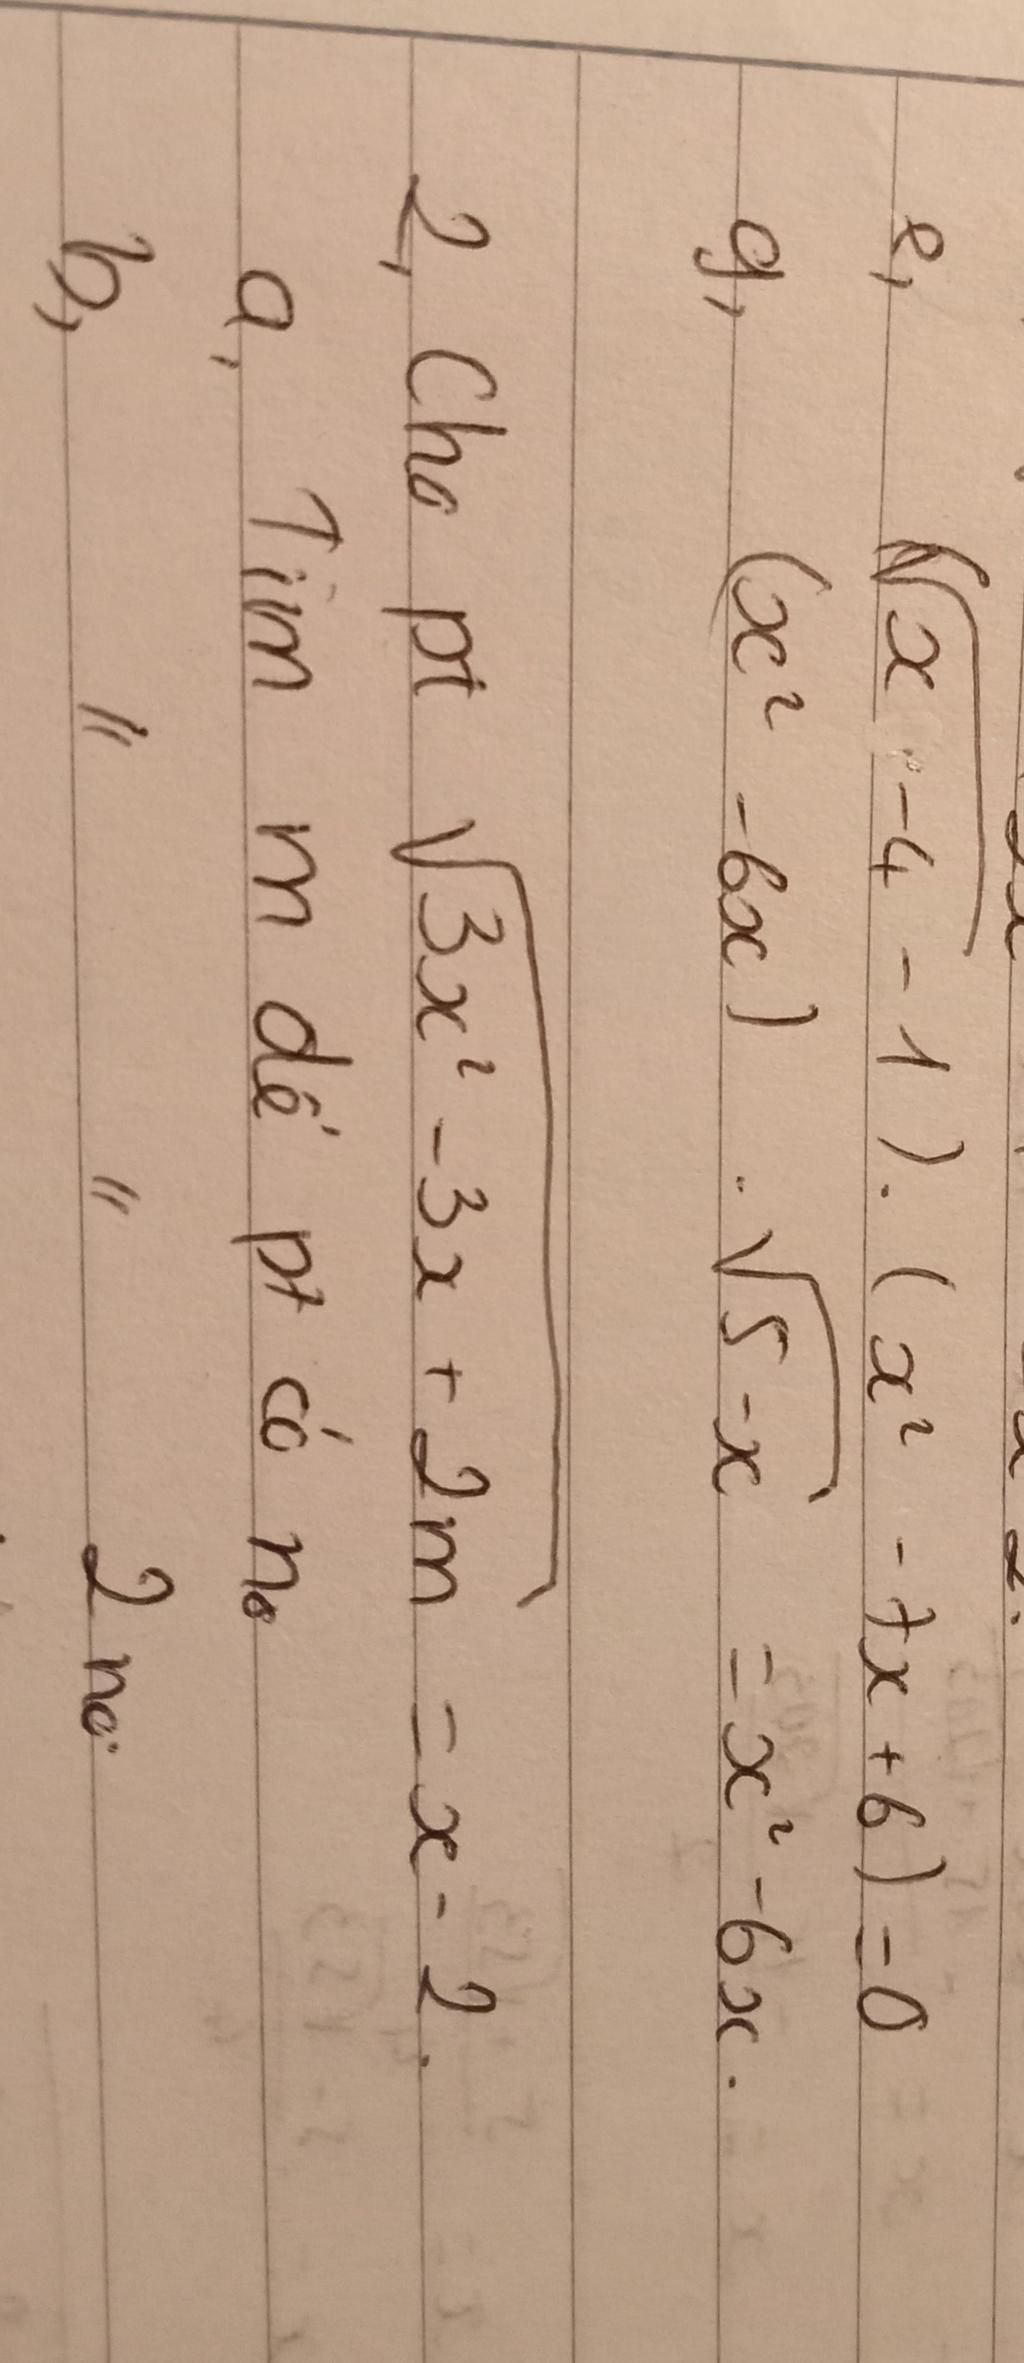 e, (√(x - 4) - 1).(x² - 7x + 6) = 0
g, (x² - 6x) . √(5 - x) = x² - 6x.
2, Cho pt √(3x² - 3x + 2m) = x - 2.
a, Tìm m để pt có no
b, " " 2 no